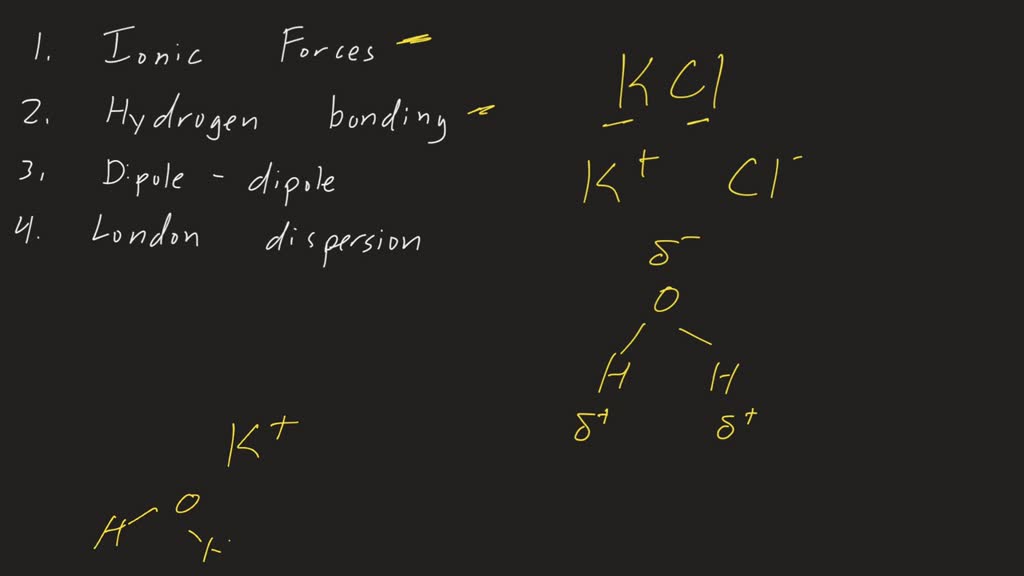 1. Ionic Forces
2. Hydrogen bonding
3. Dipole - dipole
4. London dispersion
KCl
K+ Cl-
δ-
O
H H
δ+ δ+
K+
O
H